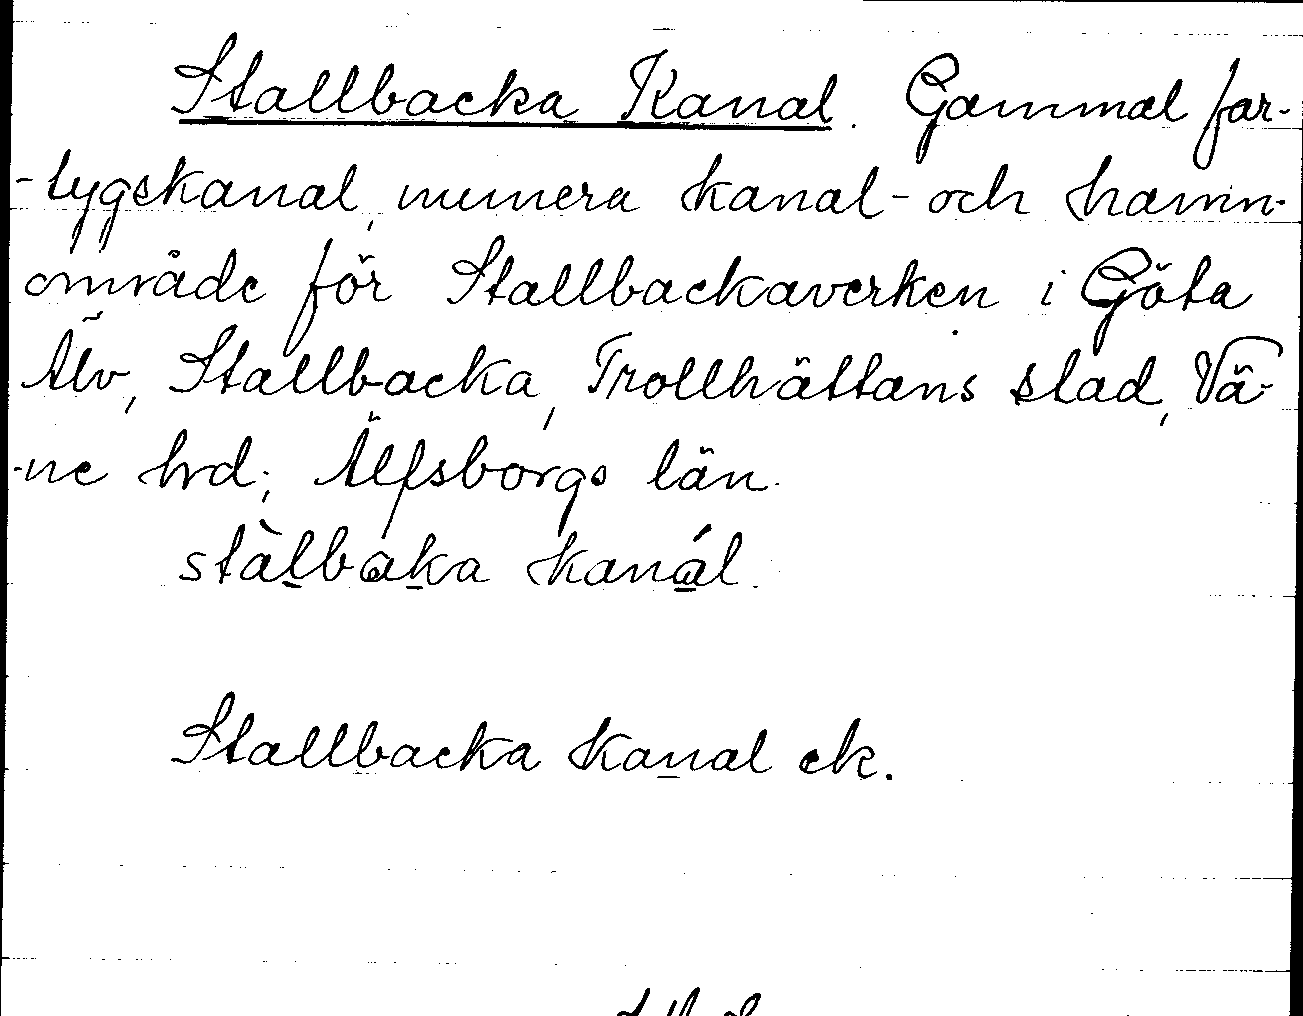 Stallbacka Kanal. Gammal far-
-tygskanal, numera kanal- och hamn-
område för Stallbackaverken i Göta
Älv, Stallbacka, Trollhättans stad, Vä-
-ne hrd; Älfsborgs län.
stàlbaka kanál.
Stallbacka kanal ek.